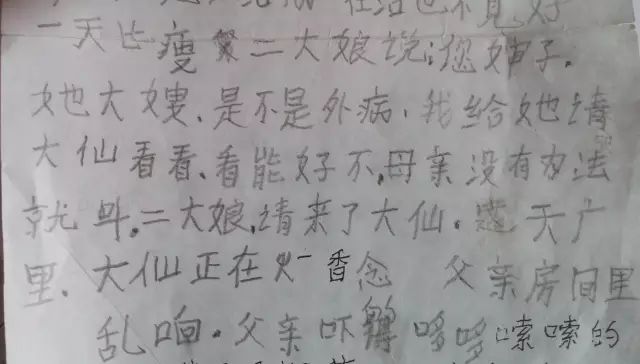 在治也不見好
一天比瘦 二大娘说:您婶子.
她大嫂.是不是外病.我给她请
大仙看看.看能好不,母亲没有办法
就叫.二大娘,请来了大仙. 天广
里.大仙正在 香念 父亲房间里
乱响.父亲吓 哆哆嗦嗦的